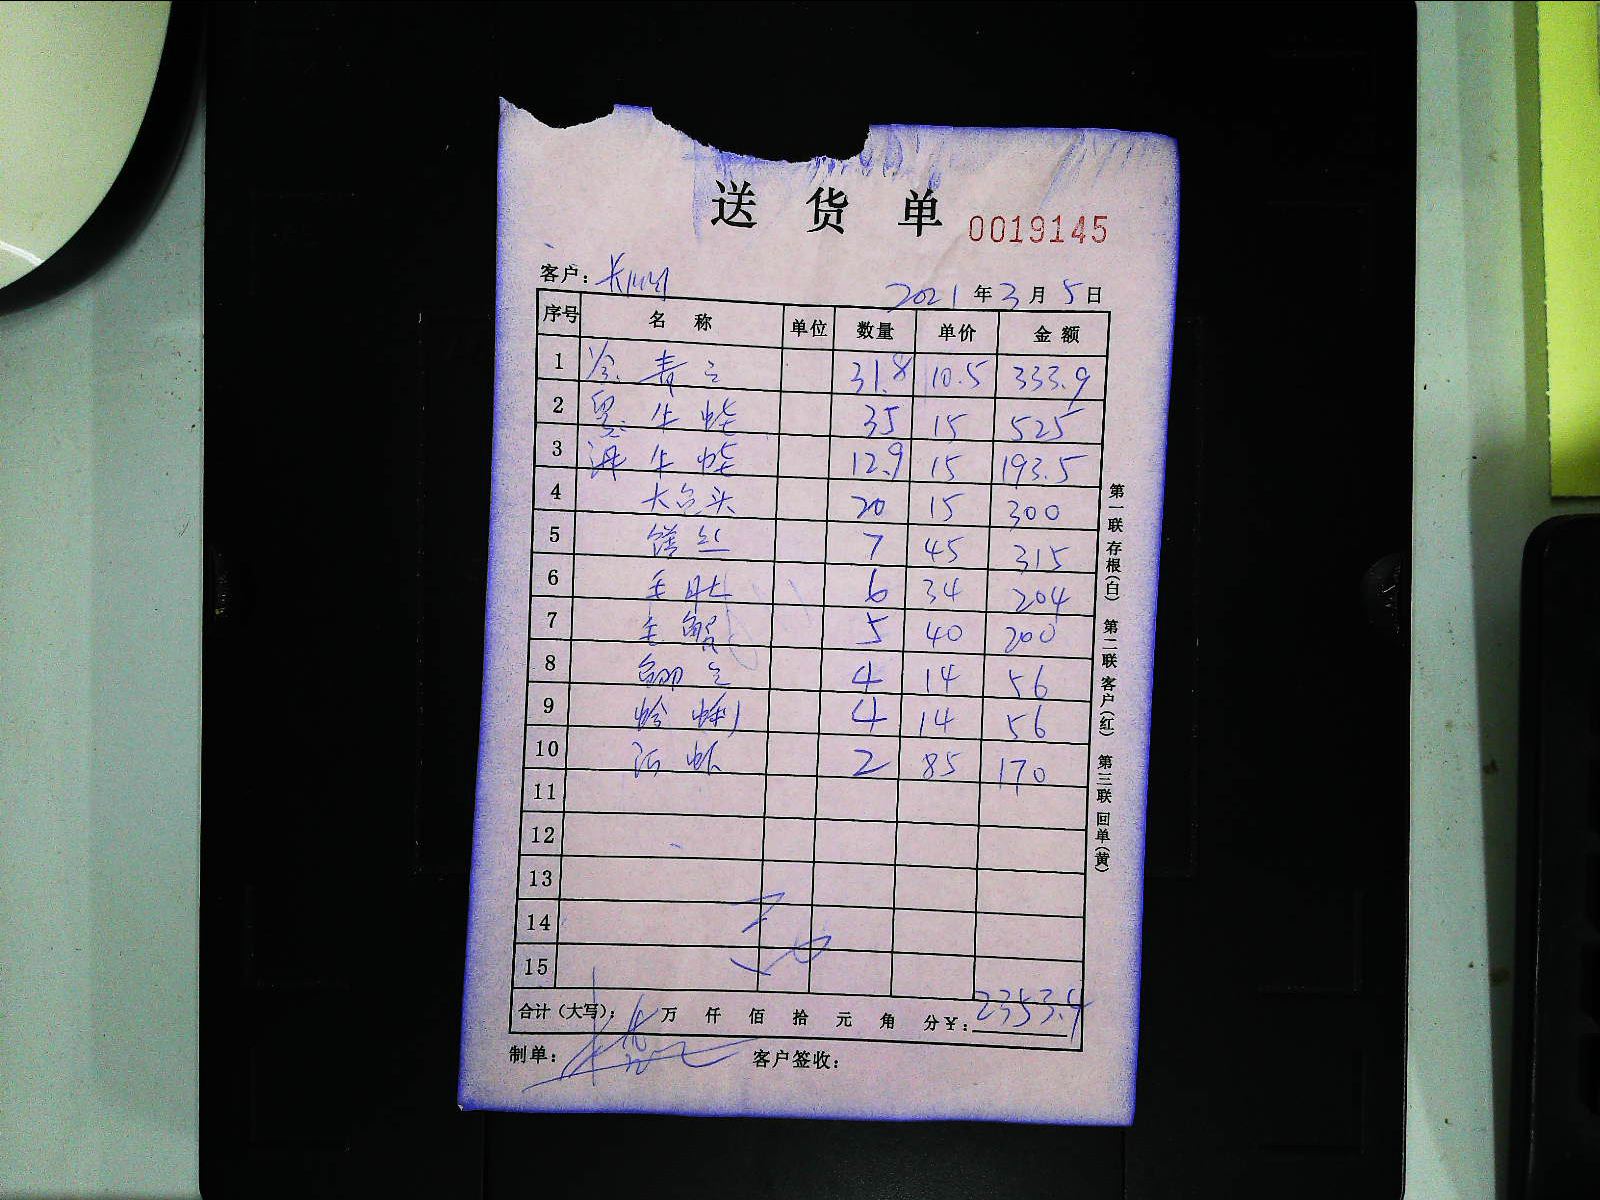 送 货 单 0019145
客户:
2021 年 3 月 5 日
序号 名 称 单位 数量 单价 金 额
1 31.8 10.5 333.9
2 黑牛蛙 35 15 525
3 牛蛙 12.9 15 193.5
4 大鱼头 20 15 300
5 7 45 315
6 毛肚 6 34 204
7 5 40 200
8 4 14 56
9 蛤蜊 4 14 56
10 河虾 2 85 170
11
12
13
14
15
合计(大写): 万 仟 佰 拾 元 角 分¥: 2353.4
制单: 客户签收:
第一联 存根(白) 第二联 客户(红) 第三联 回单(黄)